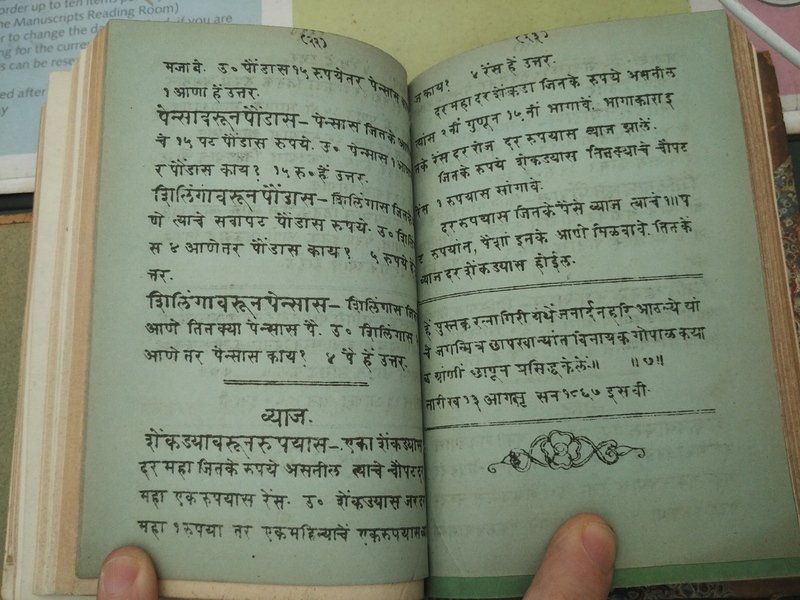 order up to ten items per
he Manuscripts Reading Room)
r to change the
if you are
ng for the
s can be
ed after
(२२)
मजावे. उ० पौंडास १५ रुपये तर पेन्सास
१ आणा हें उत्तर.
पेन्सावरून पौंडास— पेन्सास जितके
चे १५ पट पौंडास रुपये. उ० पेन्सास १
र पौंडास काय? १५ रु० हें उत्तर.
शिलिंगावरून पौंडास— शिलिंगास
णे त्याचे सवापट पौंडास रुपये. उ०
स ४ आणे तर पौंडास काय? ५ रुपये हें
त्तर.
शिलिंगावरून पेन्सास— शिलिंगास
आणे तितक्या पेन्सास पै. उ० शिलिंगास
आणे तर पेन्सास काय? ४ पै हें उत्तर.
व्याज.
शेंकड्यावरून रुपयास— एका शेंकड्यास
दर महा जितके रुपये असतील त्याचे चौपट
महा एक रुपयास रेंस. उ० शेंकड्यास जर
महा १ रुपया तर एक महिन्याचें एक रुपयास
(२३)
काय? ४ रेंस हें उत्तर.
दर महा दर शेंकडा जितके रुपये असतील
२ नीं गुणून १५ नीं भागावें. भागाकारा इ
तके रेंस दर रोज दर रुपयास व्याज झालें.
जितके रुपये शेंकड्यास तितक्याचे चौपट
रेंस १ रुपयास सांगावे.
दर रुपयास जितके पैसे व्याज त्याचे १॥ प
ट रुपयांत, पैशां इतके आणे मिळवावे. तितकें
व्याज दर शेंकड्यास होईल.
हें पुस्तक रत्नागिरी येथें जनार्दन हरि आठल्ये यां
चे जगन्मित्र छापखान्यांत विनायक गोपाळ
यांणीं छापून प्रसिद्ध केलें॥ ॥७॥
तारीख १३ आगष्ट सन १८६७ इसवी.